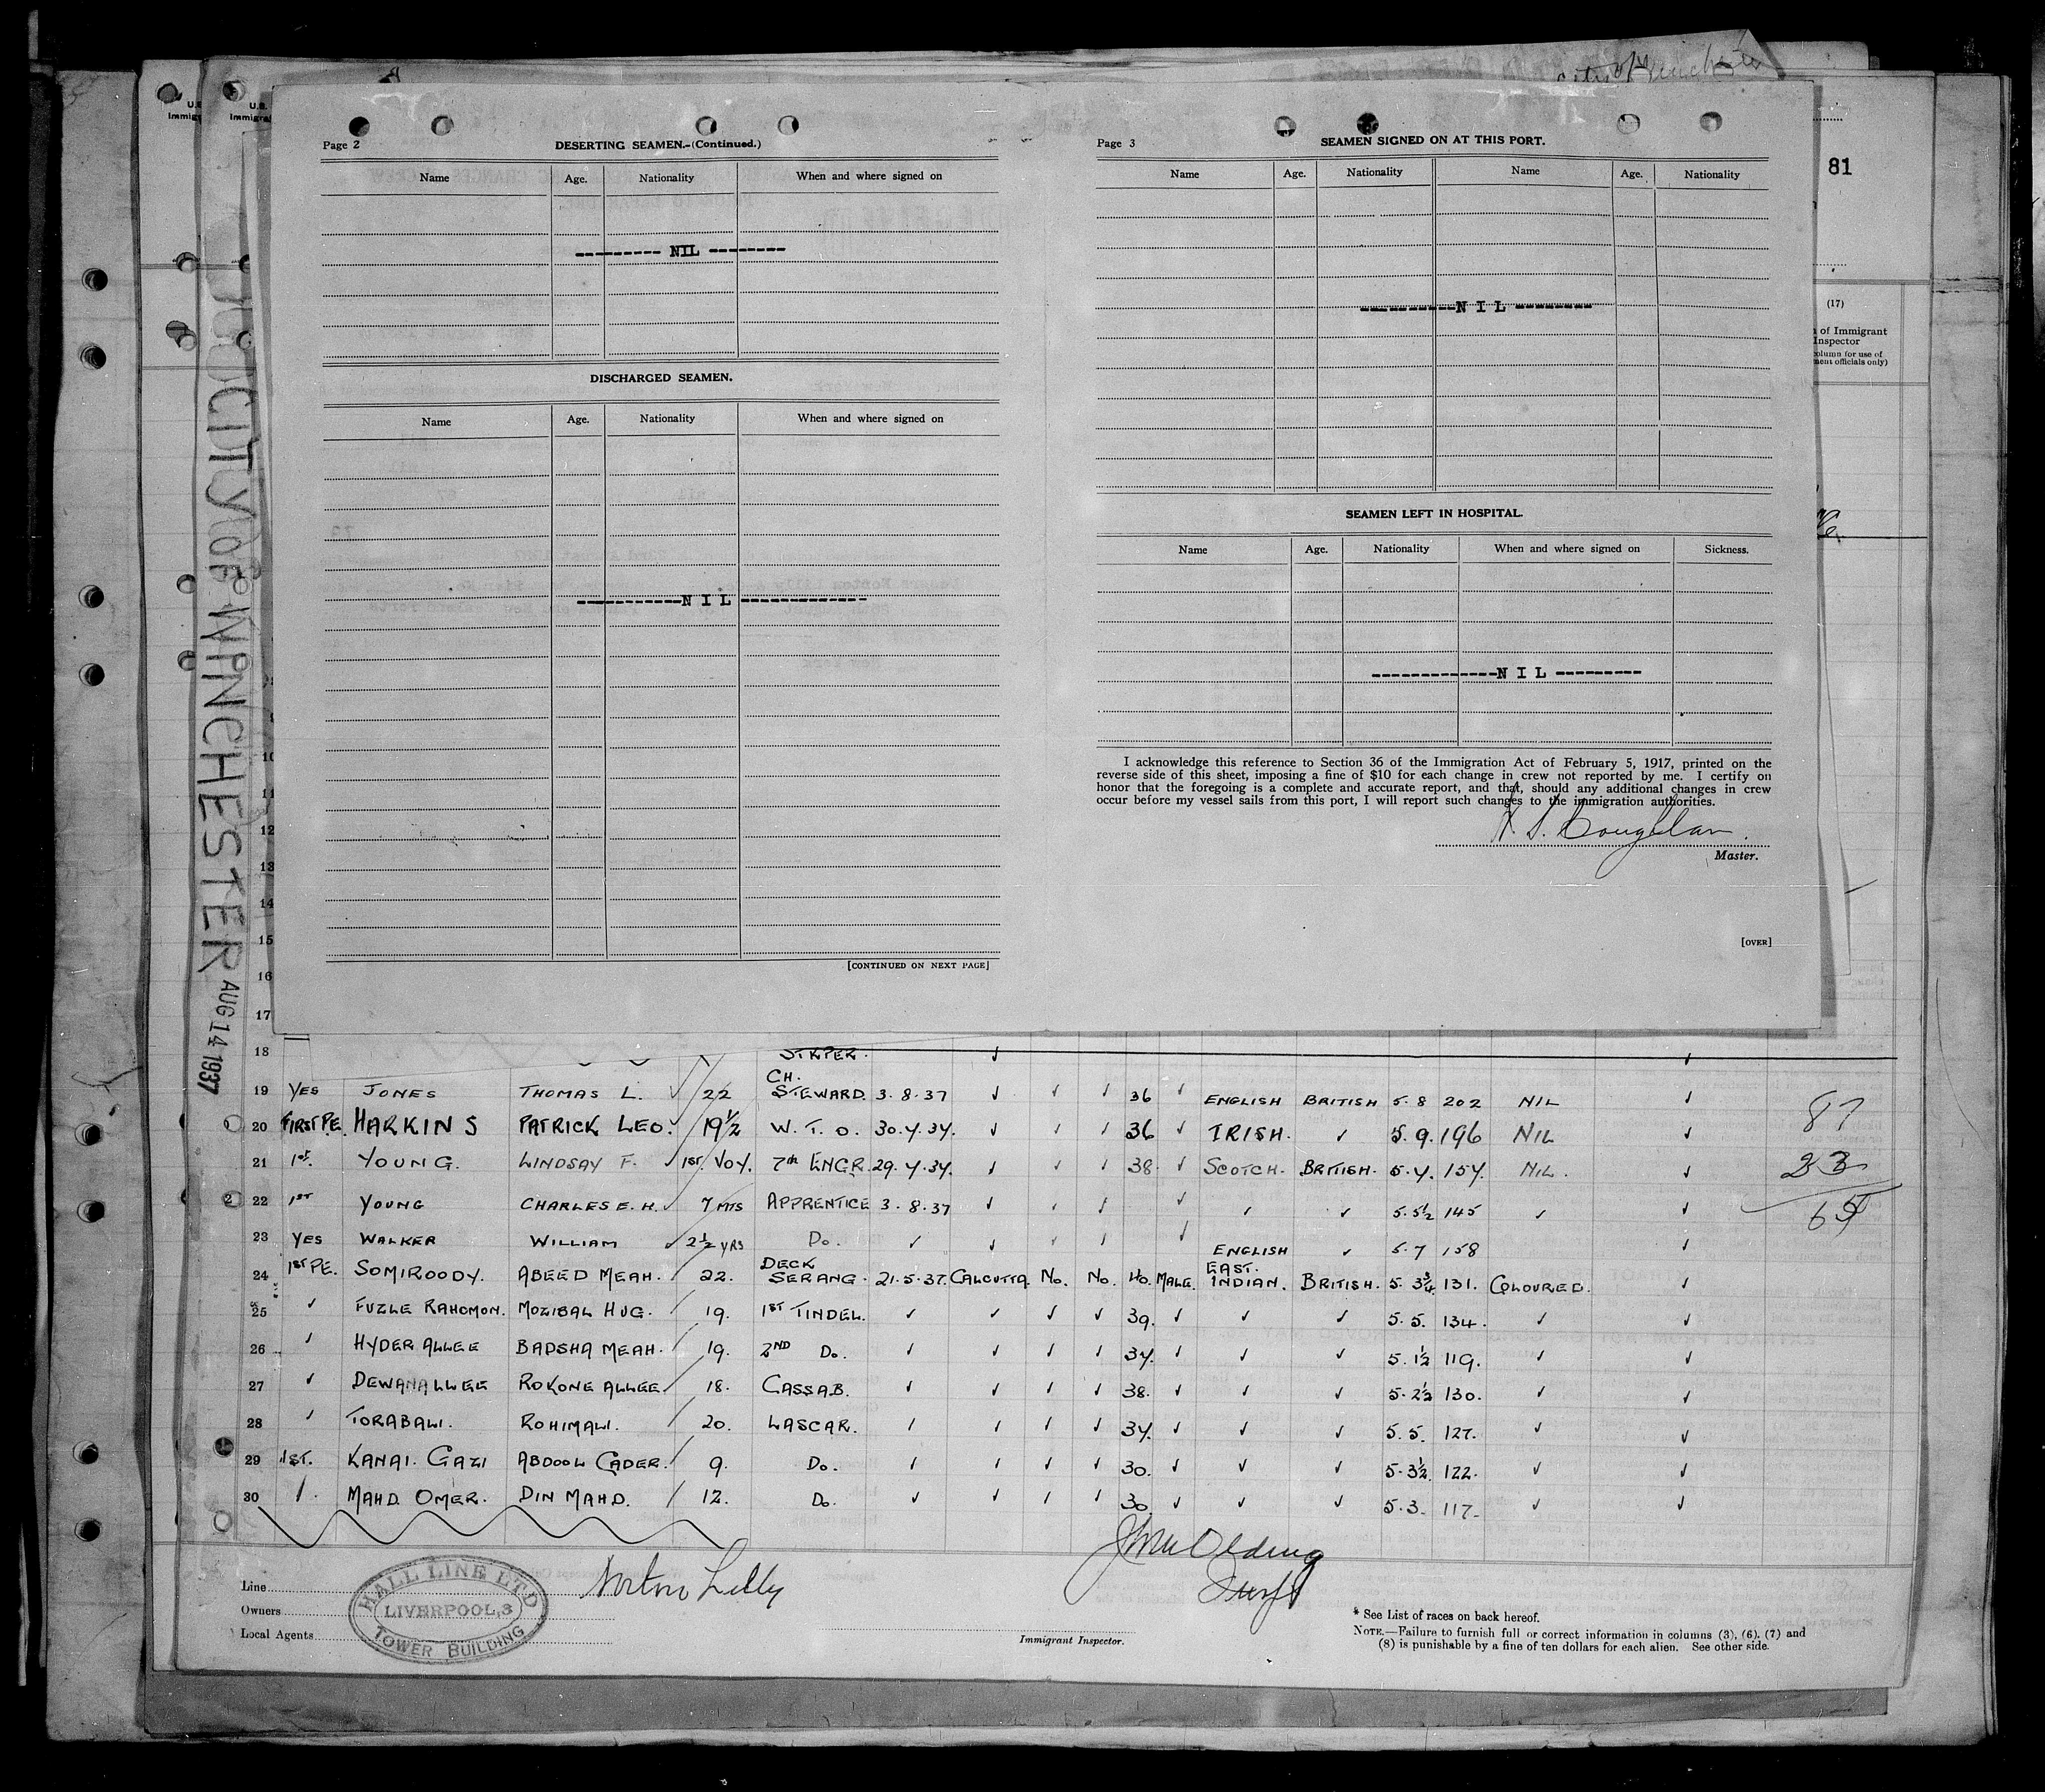 City of Winchester
81
U.S.
Immig
U.S.
Immigra
CITY OF WINCHESTER
AUG 14 1937
Page 2
DESERTING SEAMEN.-(Continued.)
Name Age. Nationality When and where signed on
--------- NIL --------
DISCHARGED SEAMEN.
Name Age. Nationality When and where signed on
-----------N I L-------------
[CONTINUED ON NEXT PAGE]
Page 3
SEAMEN SIGNED ON AT THIS PORT.
Name Age. Nationality Name Age. Nationality
----------N I L --------
SEAMEN LEFT IN HOSPITAL.
Name Age. Nationality When and where signed on Sickness.
-------------N I L ---------
I acknowledge this reference to Section 36 of the Immigration Act of February 5, 1917, printed on the
reverse side of this sheet, imposing a fine of $10 for each change in crew not reported by me. I certify on
honor that the foregoing is a complete and accurate report, and that, should any additional changes in crew
occur before my vessel sails from this port, I will report such changes to the immigration authorities.
Coughlan
Master.
[OVER]
(17)
of Immigrant
Inspector
column for use of
ment officials only)
10
11
12
13
14
15
16
17
18 STKPER. ✓ ✓
CH.
19 YES JONES THOMAS L. ✓ 22 STEWARD. 3.8.37 ✓ ✓ ✓ 36 ✓ ENGLISH BRITISH 5.8 202 NIL ✓
20 FIRST PE. HARKINS PATRICK LEO. 19½ W.T.O. 30.7.37. ✓ ✓ ✓ 36 ✓ IRISH. ✓ 5.9. 196 NIL ✓
21 1st. YOUNG. LINDSAY F. ✓ 1ST. VOY. 7th ENGR. 29.7.37. ✓ ✓ ✓ 38. ✓ SCOTCH. BRITISH. 5.7. 157. NIL. ✓
22 1ST YOUNG CHARLES E. H. ✓ 7 MTS APPRENTICE 3.8.37 ✓ ✓ ✓ ✓ ✓ ✓ 5.5½ 145 ✓ ✓
23 YES WALKER WILLIAM ✓ 2½ YRS Do. ✓ ✓ ✓ ✓ ✓ ENGLISH ✓ 5.7 158 ✓
DECK EAST.
24 1ST PE. SOMIROODY. ABEED MEAH. 22. SERANG. 21.5.37. CALCUTTA. No. No. 40. MALE. INDIAN. BRITISH. 5.3¾ 131. COLOURED. ✓
25 ✓ FUZLE RAHOMON. MOZIBAL HUG. 19. 1ST TINDEL. ✓ ✓ ✓ ✓ 39. ✓ ✓ ✓ 5.5. 134. ✓ ✓
26 ✓ HYDER ALLEE BADSHA MEAH. 19. 2ND Do. ✓ ✓ ✓ ✓ 37. ✓ ✓ ✓ 5.1½ 119. ✓ ✓
27 ✓ DEWANALLEE ROKONE ALLEE. 18. CASSAB. ✓ ✓ ✓ ✓ 38. ✓ ✓ ✓ 5.2½ 130. ✓ ✓
28 ✓ TORABALI. ROHIMALI. 20. LASCAR. ✓ ✓ ✓ ✓ 37. ✓ ✓ ✓ 5.5. 127. ✓ ✓
29 1ST. KANAI. GAZI ABDOOL CADER. 9. Do. ✓ ✓ ✓ ✓ 30. ✓ ✓ ✓ 5.3½. 122. ✓ ✓
30 ✓ MAHD. OMER. DIN MAHD. 12. Do. ✓ ✓ ✓ ✓ 30 ✓ ✓ ✓ 5.3. 117. ✓ ✓
87
23
Line
Owners
Local Agents
HALL LINE LTD
LIVERPOOL, 3
TOWER BUILDING
Norton Lilly
Immigrant Inspector.
* See List of races on back hereof.
NOTE.—Failure to furnish full or correct information in columns (3), (6), (7) and
(8) is punishable by a fine of ten dollars for each alien. See other side.